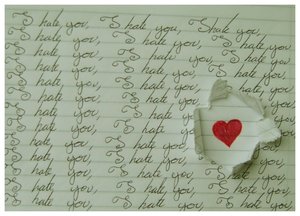 I hate you, I hate you, I hate you,
I hate you, I hate you, I hate you
I hate you, I hate you, I hate you,
I hate you, I hate you, I hate you,
I hate you, I hate you, I hate you,
I hate you, I hate you,
I hate you, I hate you,
I hate you, I hate you,
I hate you, I hate you,
I hate you, I hate you, I hate you,
I hate you, I hate you, I hate you,
I hate you, I hate you, I hate you,